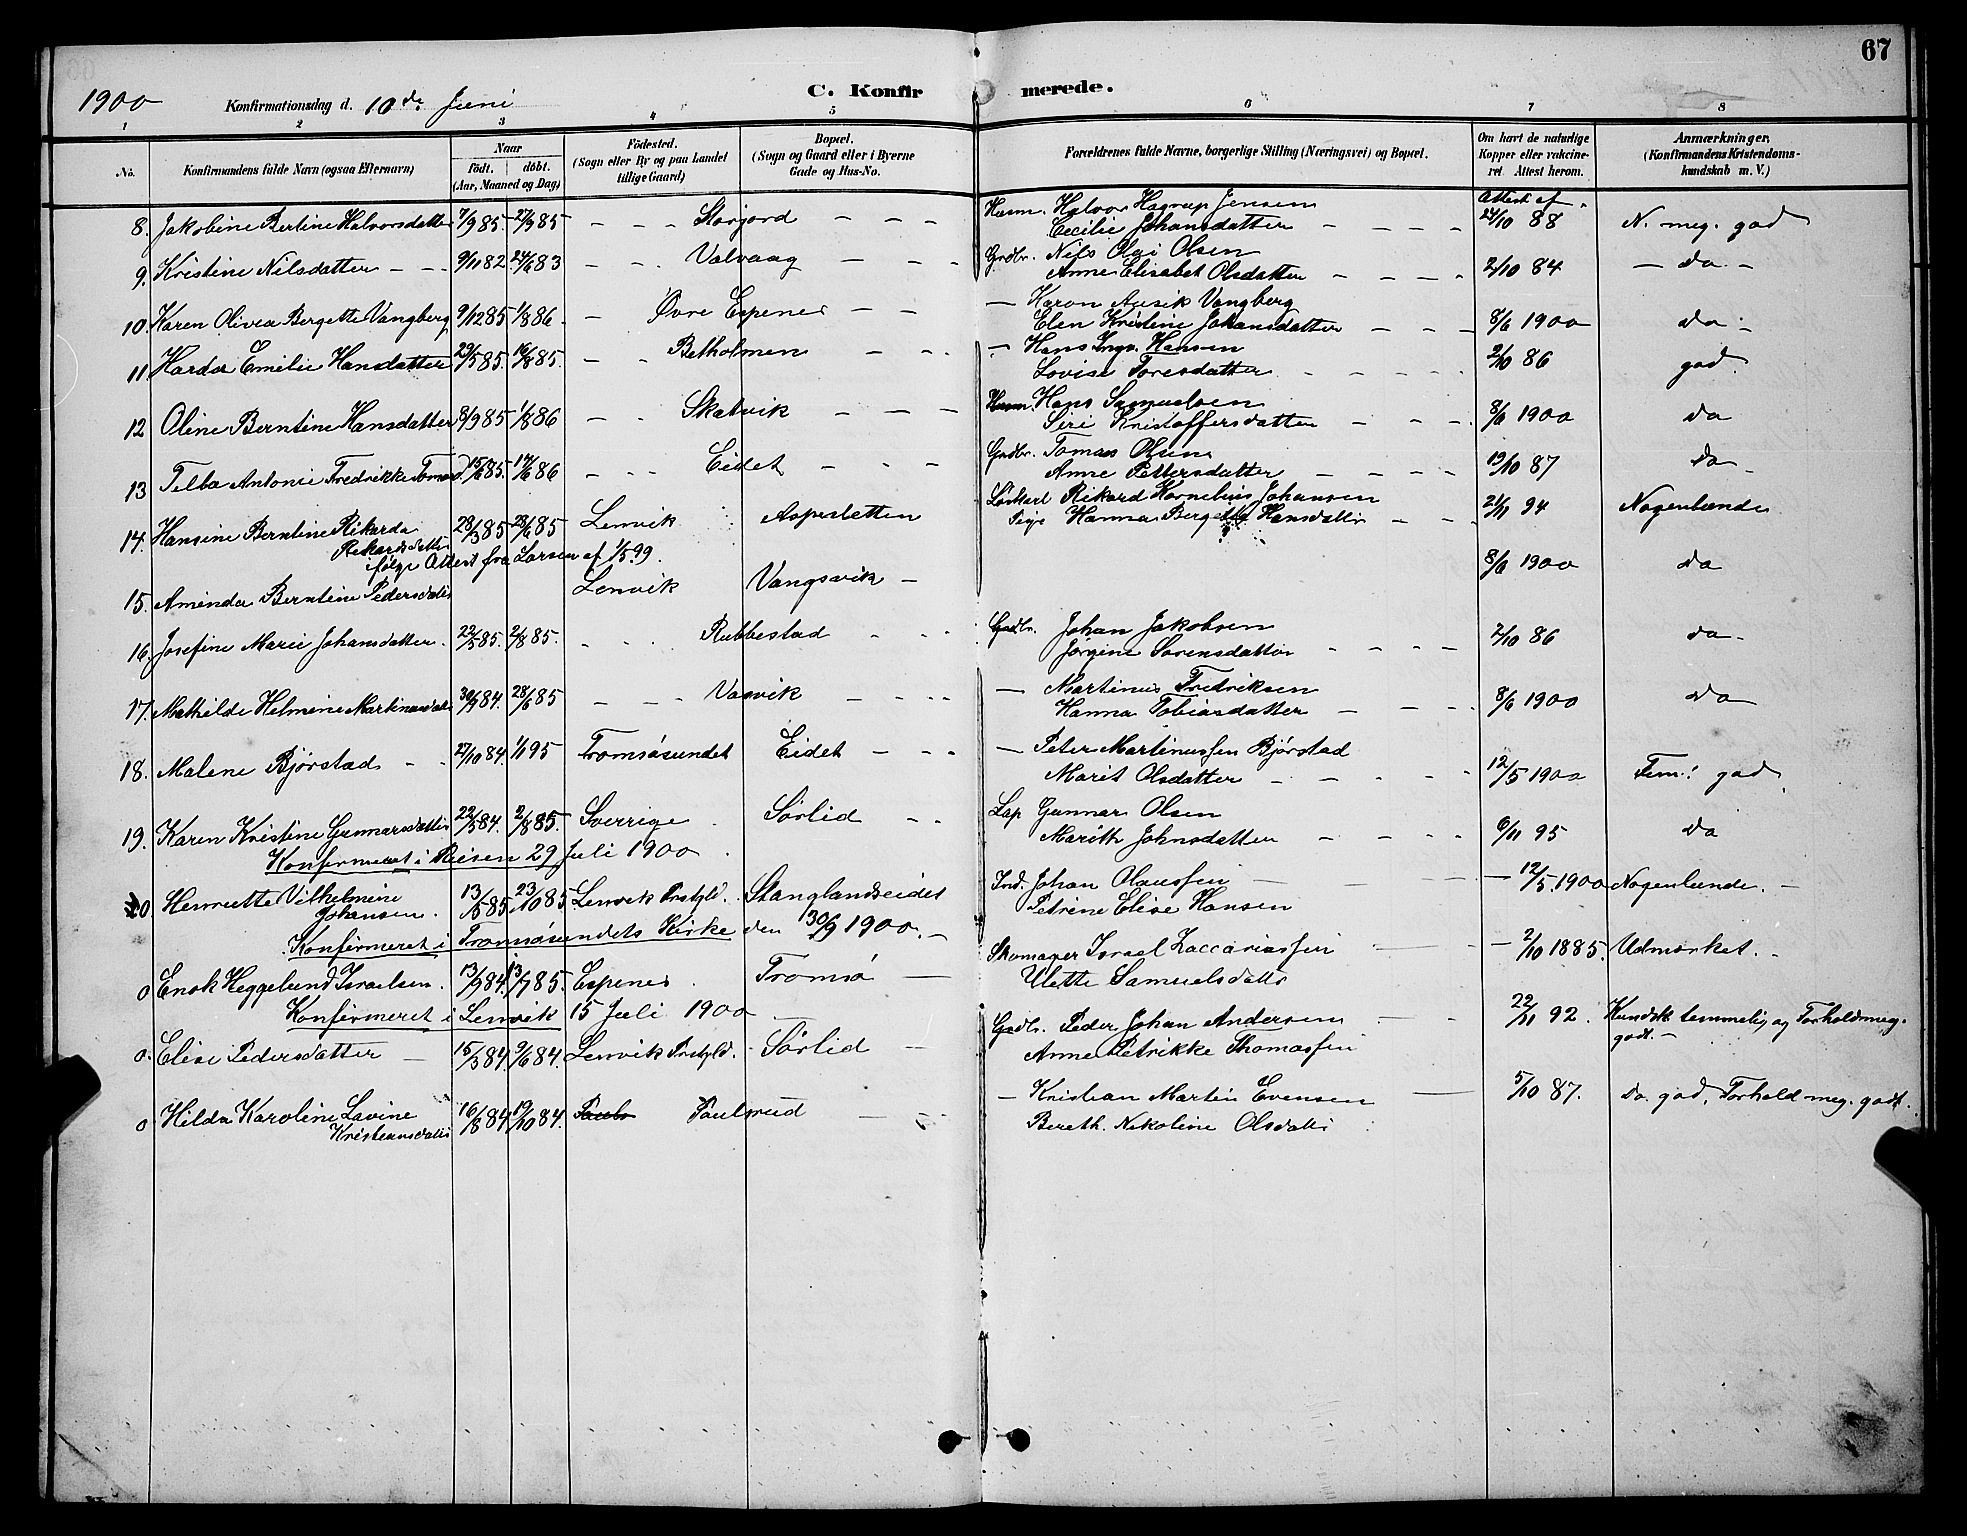 67
1900 Konfirmationsdag d. 10de Juni
C. Konfirmerede.
1 2 3 4 5 6 7 8
No. Konfirmandens fulde Navn (ogsaa Efternavn) Naar födt. döbt. (Aar, Maaned og Dag) Födested. (Sogn eller By og paa Landet tillige Gaard) Bopæl. (Sogn og Gaard eller i Byerne Gade og Hus-No. Forældrenes fulde Navne, borgerlige Stilling (Næringsvei) og Bopæl. Om havt de naturlige Kopper eller vakcineret Attest herom. Anmærkninger. (Konfirmandens Kristendomskundskab m. V.)
Attest af
8. Jakobine Bertine Halvorsdatter 7/9 85. 27/9 85 - - - Storjord - - - Husm. Halvor Hagrup Jensen 24/10 88 N. meg. god
Cecilie Johansdatter - - - -
9. Kristine Nilsdatter - - 9/11 82 24/6 83 - - Valvaag - - - Grdbr. Nils Olai Olsen 2/10 84 - do -
Anne Elisabet Olsdatter - - - -
10. Karen Olivea Bergette Vangberg 9/12 85 1/8 86 - Øvre Espenes - - - Karon Vangberg 8/6 1900 do -
Elen Kristine Johansdatter - - -
11. Harda Emilie Hansdatter 29/5 85. 16/8 85. - - Betholmen - - - Hans Ingv. Hansen 2/10 86 god
Lovise Toresdatter - - - -
12 Oline Berntine Hansdatter 8/9 85 1/8 86 - - Skatvik - - - Husm. Hans Samuelsen 8/6 1900 do
Siri Kristoffersdatter - - -
13 Telba Antonie Fredrikke Tomasd. 15/6 85. 14/6 86 - - Eidet - - - Grdbr. Tomas Olsen 19/10 87 do -
Anne Pettersdatter - - - -
14. Hansine Berntine Rikarda 28/3 85 28/6 85 Lenvik Aspesletten Løskarl Rikard Kornelius Johansen 21/11 94 Nogenlunde
Rikardsdatter Pige Hanna Bergette Hansdatter - -
ifølge Attest fra Larsen af 1/5 99.
15. Aminda Berntine Pedersdatter Lenvik Vangsvik - 8/6 1900 do
16. Josefine Marie Johansdatter. 22/5 85. 2/8 85. - - Rubbestad - - - Grdbr. Johan Jakobsen 2/10 86 do -
Jørgine Sørensdatter - - - -
17. Mathilde Helmine Martinusdatter 30/9 84. 28/6 85 - - - Vasvik - - - - Martinus Fredriksen 8/6 1900 do
Hanna Tobiasdatter - - - -
18. Malene Bjørstad - - 27/10 84. 1/11 95 Tromsøsundet Eidet - - - - Peter Martinussen Bjørstad 12/5 1900 Tem. god
Marit Olsdatter - - - -
19. Karen Kristine Gunnarsdatter 22/5 84. 2/8 85. Sverrige. Sørlid - - Lap Gunnar Olsen 6/11 95 do
Marith Johnsdatter - - - -
Konfirmeret i Reisen 29 Juli 1900.
20 Henriette Vilhelmine 13/5 85 23/10 85 Lenvik Prstgld. Stanglandseidet Ind. Johan Olaussen - - - 12/5 1900 Nogenlunde. -
Johansen. Petrine Elise Hansen
Konfirmeret i Tromsøsundets Kirke den 30/9 1900. -
0 Enok Heggelund Israelsen. 13/9 84. 13/7 85. Espenes. Tromsø - Skomager Israel Zaccariassen - 2/10 1885. Udmærket. -
Ulette Samuelsdatter
Konfirmeret i Lenvik 15 Juli 1900 -
0. Elise Pedersdatter - 15/3 84. 9/6 84. Lenvik Prstgld. - Sørlid - Grdbr. Peder Johan Andersen - 22/11 92. Kundsk. temmelig og Forhold meg.
Anne Petrikke Thomassen godt. -
0 Hilda Karoline Lavine 16/8 84 19/10 84. Pauls Paulsrud - - - Kristian Martin Evensen - 5/10 87. do. god, Forhold meg. godt.
Kristiansdatter Bereth. Nikoline Olsdatter